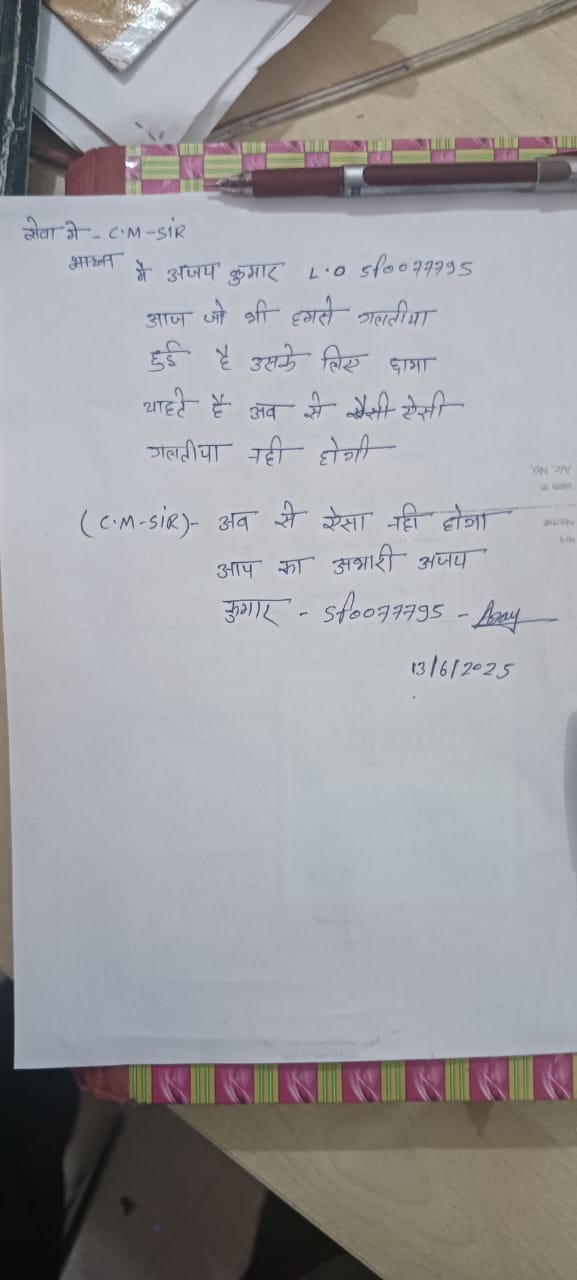 सेवा मे - C.M-SIR
मै अजय कुमार L.O Sf0077795
आज जो भी हमसे गलतीया
हुई है उसके लिए छामा
चाहते है अब से ऐसी
गलतीया नही होगी
(C.M-SIR)- अब से ऐसा नही होगा
आप का अभारी अजय
कुमार - Sf0077795 - Ajay
13/6/2025